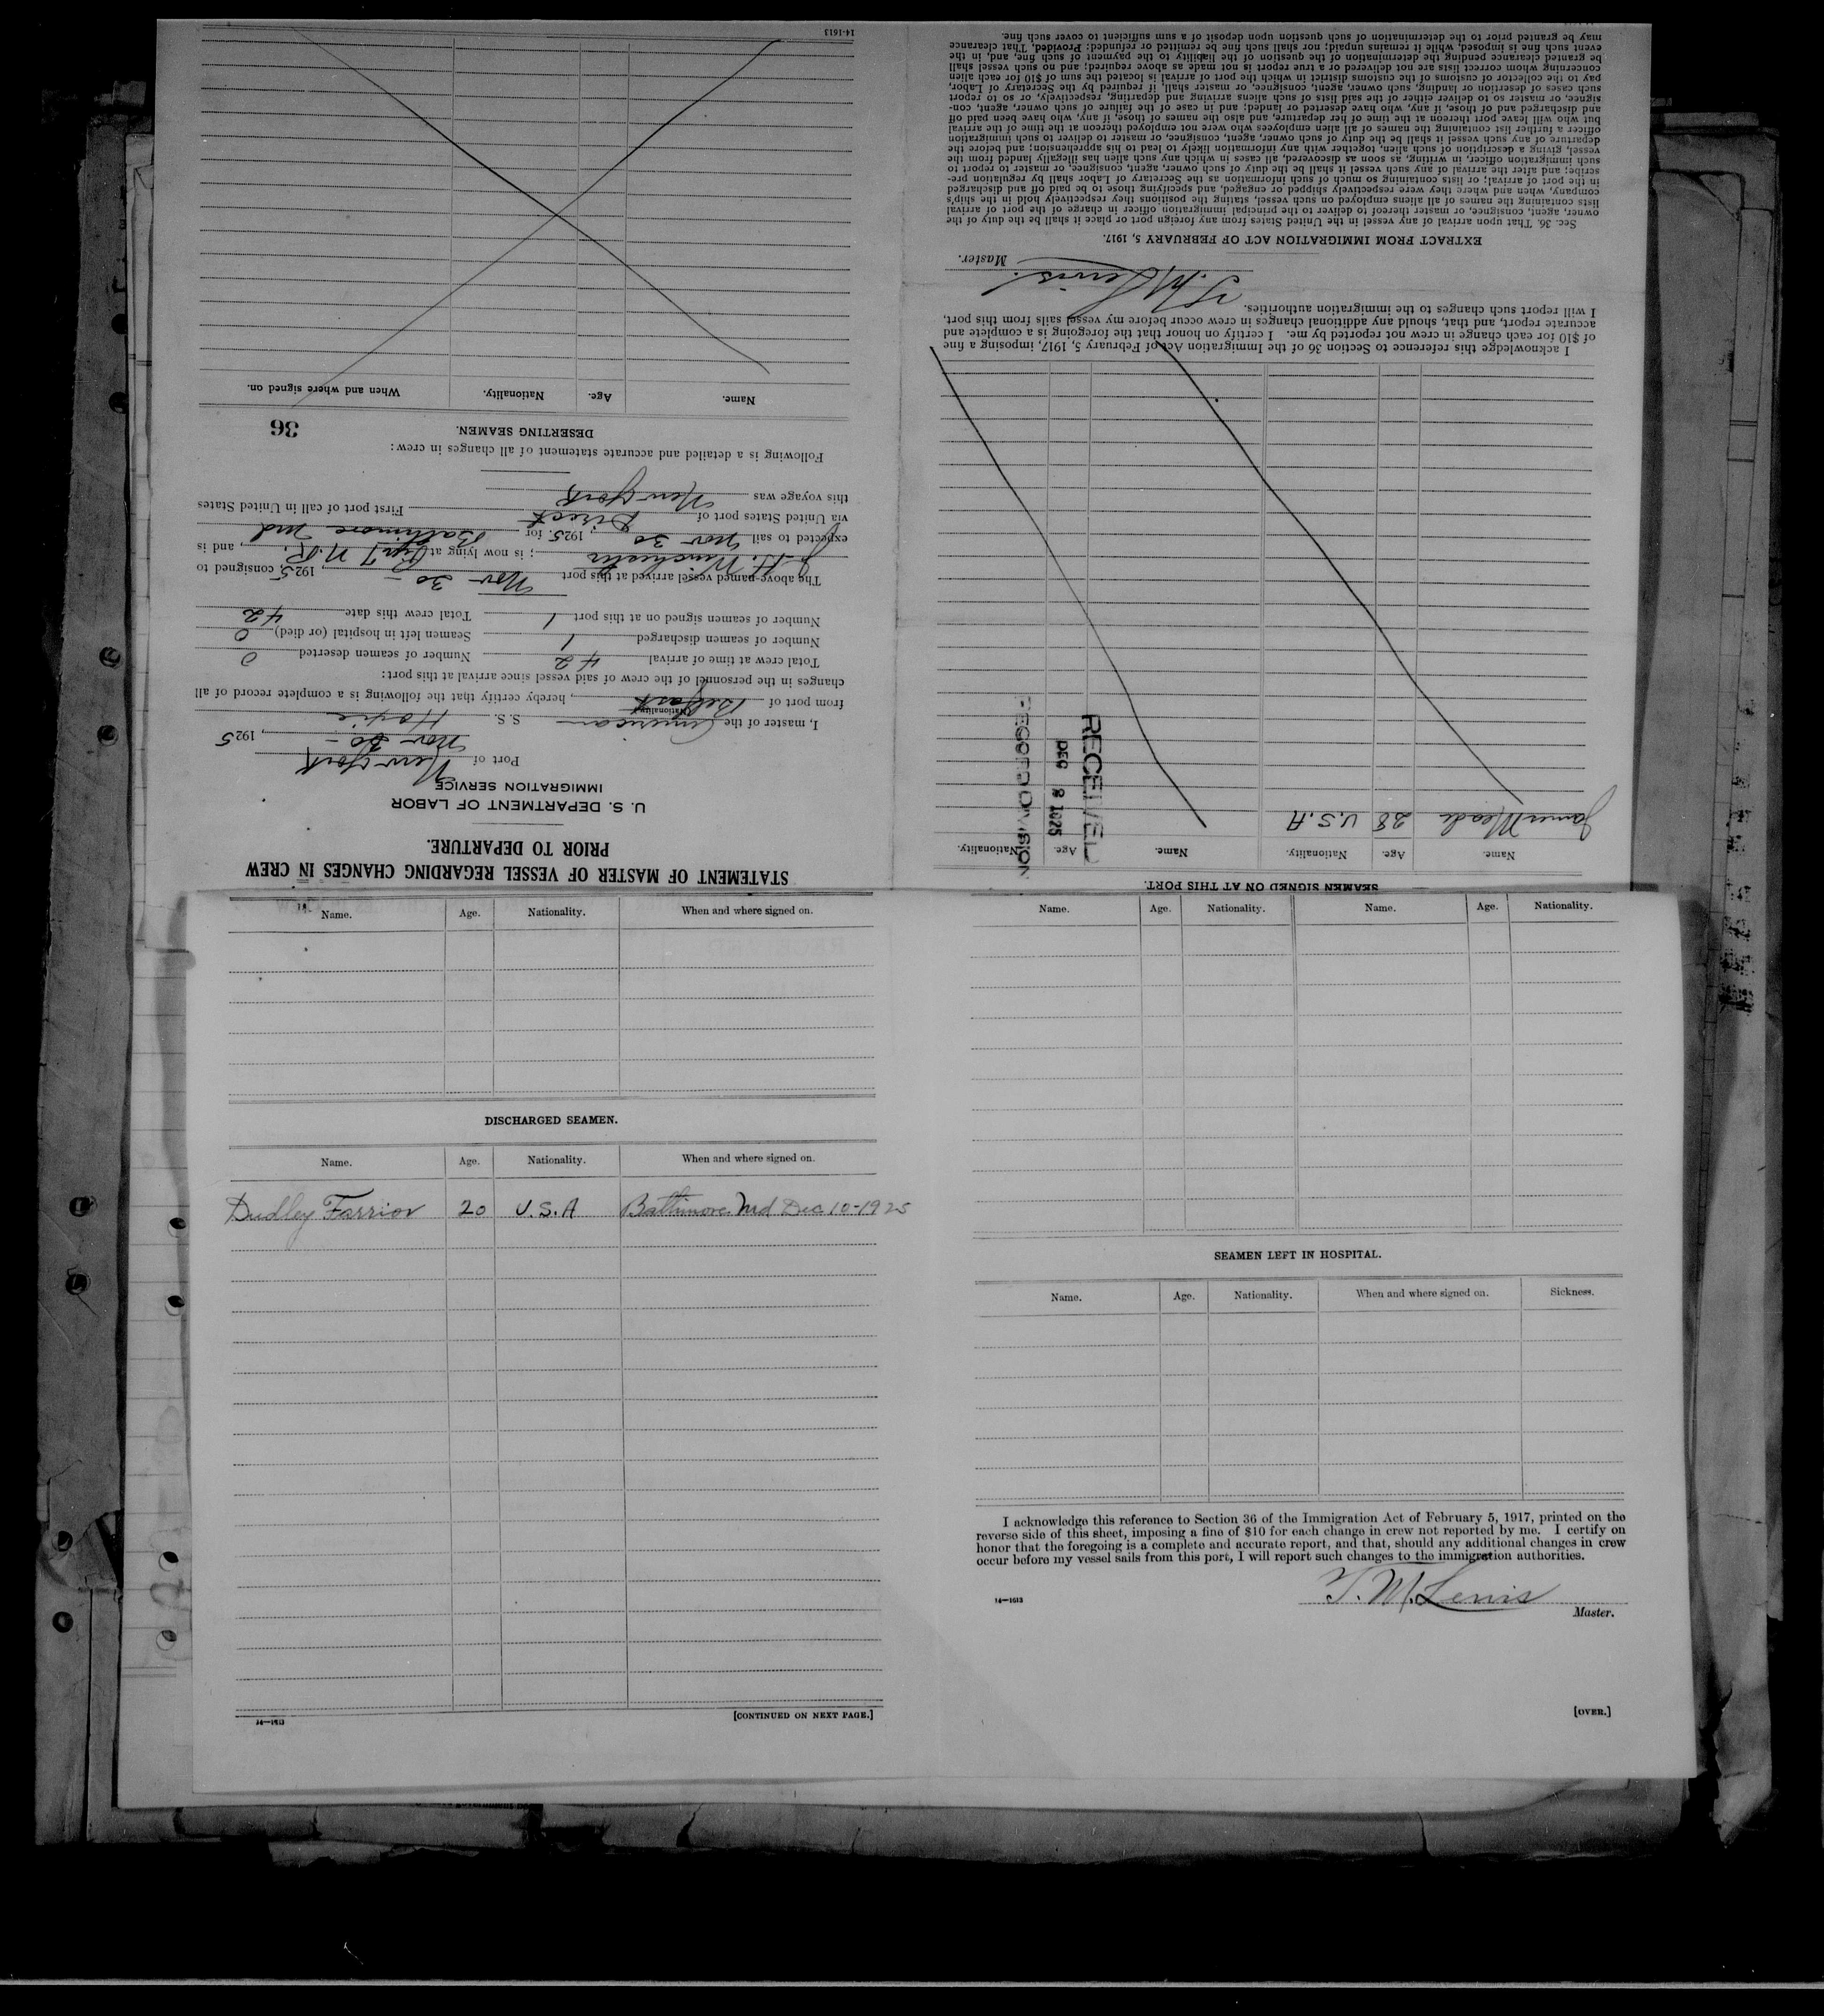 STATEMENT OF MASTER OF VESSEL REGARDING CHANGES IN CREW
PRIOR TO DEPARTURE.
U. S. DEPARTMENT OF LABOR
IMMIGRATION SERVICE
Port of New York
Nov 30 – , 1925
I, master of the American S. S. Hoxie
Nationality
from port of Belfast, hereby certify that the following is a complete record of all
changes in the personnel of the crew of said vessel since arrival at this port:
Total crew at time of arrival 42 Number of seamen deserted 0
Number of seamen discharged 1 Seamen left in hospital (or died) 0
Number of seamen signed on at this port 1 Total crew this date 42
The above-named vessel arrived at this port Nov 30 – , 1925, consigned to
J. H. Winchester ; is now lying at Pier 7 N.R. , and is
expected to sail Nov 30 , 1925. for Baltimore Md
via United States port of Direct First port of call in United States
this voyage was New York
Following is a detailed and accurate statement of all changes in crew:
DESERTING SEAMEN.
36
Name. Age. Nationality. When and where signed on.
14-1613
SEAMEN SIGNED ON AT THIS PORT.
Name. Age. Nationality. Name. Age. Nationality.
James Meade 28 U.S.A
RECEIVED
DEC 2 1925
RECORD DIVISION
I acknowledge this reference to Section 36 of the Immigration Act of February 5, 1917, imposing a fine
of $10 for each change in crew not reported by me. I certify on honor that the foregoing is a complete and
accurate report, and that, should any additional changes in crew occur before my vessel sails from this port,
I will report such changes to the immigration authorities.
T. M. Lewis.
Master.
EXTRACT FROM IMMIGRATION ACT OF FEBRUARY 5, 1917.
Sec. 36. That upon arrival of any vessel in the United States from any foreign port or place it shall be the duty of the
owner, agent, consignee, or master thereof to deliver to the principal immigration officer in charge of the port of arrival
lists containing the names of all aliens employed on such vessel, stating the positions they respectively hold in the ship's
company, when and where they were respectively shipped or engaged, and specifying those to be paid off and discharged
in the port of arrival; or lists containing so much of such information as the Secretary of Labor shall by regulation pre-
scribe; and after the arrival of any such vessel it shall be the duty of such owner, agent, consignee, or master to report to
such immigration officer, in writing, as soon as discovered, all cases in which any such alien has illegally landed from the
vessel, giving a description of such alien, together with any information likely to lead to his apprehension; and before the
departure of any such vessel it shall be the duty of such owner, agent, consignee, or master to deliver to such immigration
officer a further list containing the names of all alien employees who were not employed thereon at the time of the arrival
but who will leave port thereon at the time of her departure, and also the names of those, if any, who have been paid off
and discharged and of those, if any, who have deserted or landed; and in case of the failure of such owner, agent, con-
signee, or master so to deliver either of the said lists of such aliens arriving and departing, respectively, or so to report
such cases of desertion or landing, such owner, agent, consignee, or master shall, if required by the Secretary of Labor,
pay to the collector of customs of the customs district in which the port of arrival is located the sum of $10 for each alien
concerning whom correct lists are not delivered or a true report is not made as above required; and no such vessel shall
be granted clearance pending the determination of the question of the liability to the payment of such fine, and, in the
event such fine is imposed, while it remains unpaid; nor shall such fine be remitted or refunded: Provided, That clearance
may be granted prior to the determination of such question upon deposit of a sum sufficient to cover such fine.
Name. Age. Nationality. When and where signed on.
DISCHARGED SEAMEN.
Name. Age. Nationality. When and where signed on.
Dudley Farrior 20 U.S.A Baltimore Md Dec 10-1925
14—1613
[CONTINUED ON NEXT PAGE.]
Name. Age. Nationality. Name. Age. Nationality.
SEAMEN LEFT IN HOSPITAL.
Name. Age. Nationality. When and where signed on. Sickness.
I acknowledge this reference to Section 36 of the Immigration Act of February 5, 1917, printed on the
reverse side of this sheet, imposing a fine of $10 for each change in crew not reported by me. I certify on
honor that the foregoing is a complete and accurate report, and that, should any additional changes in crew
occur before my vessel sails from this port, I will report such changes to the immigration authorities.
T. M. Lewis
14—1613
Master.
[OVER.]